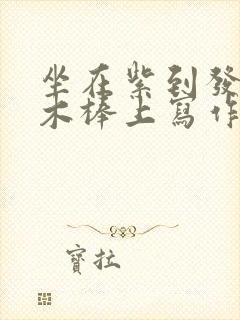 坐在紫到發
木棒上寫作
寶拉